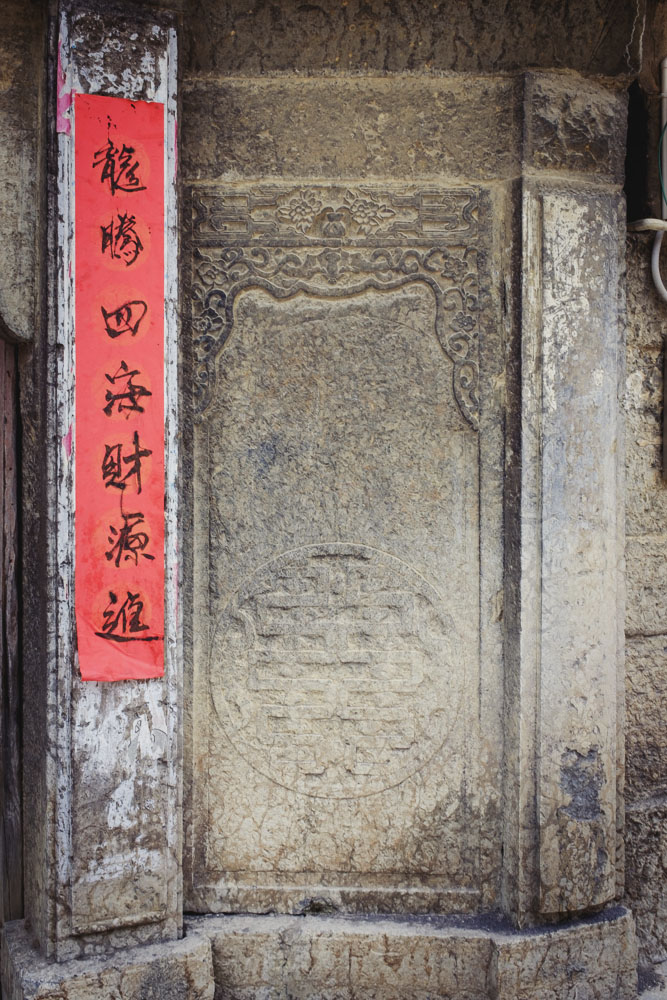 龍騰四海財源進